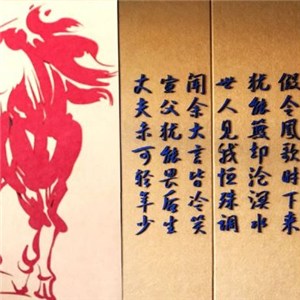 假令风歇时下来
犹能簸却沧溟水
世人见我恒殊调
闻余大言皆冷笑
宣父犹能畏后生
丈夫未可轻年少